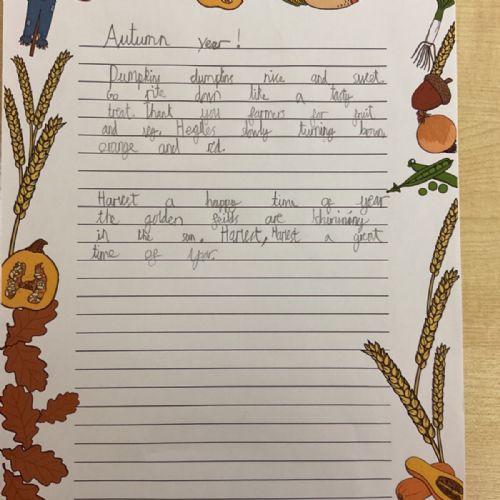 Autumn year!
Pumpking dumpling nice and swet
Go rite down like a tasty
treat. Thank you farmers for fruit
and veg. Hegles slowly turning brown
orange and red.
Harvest a happy time of year
the golden feilds are
in the sun. Harvest, Harvest a great
time of year.